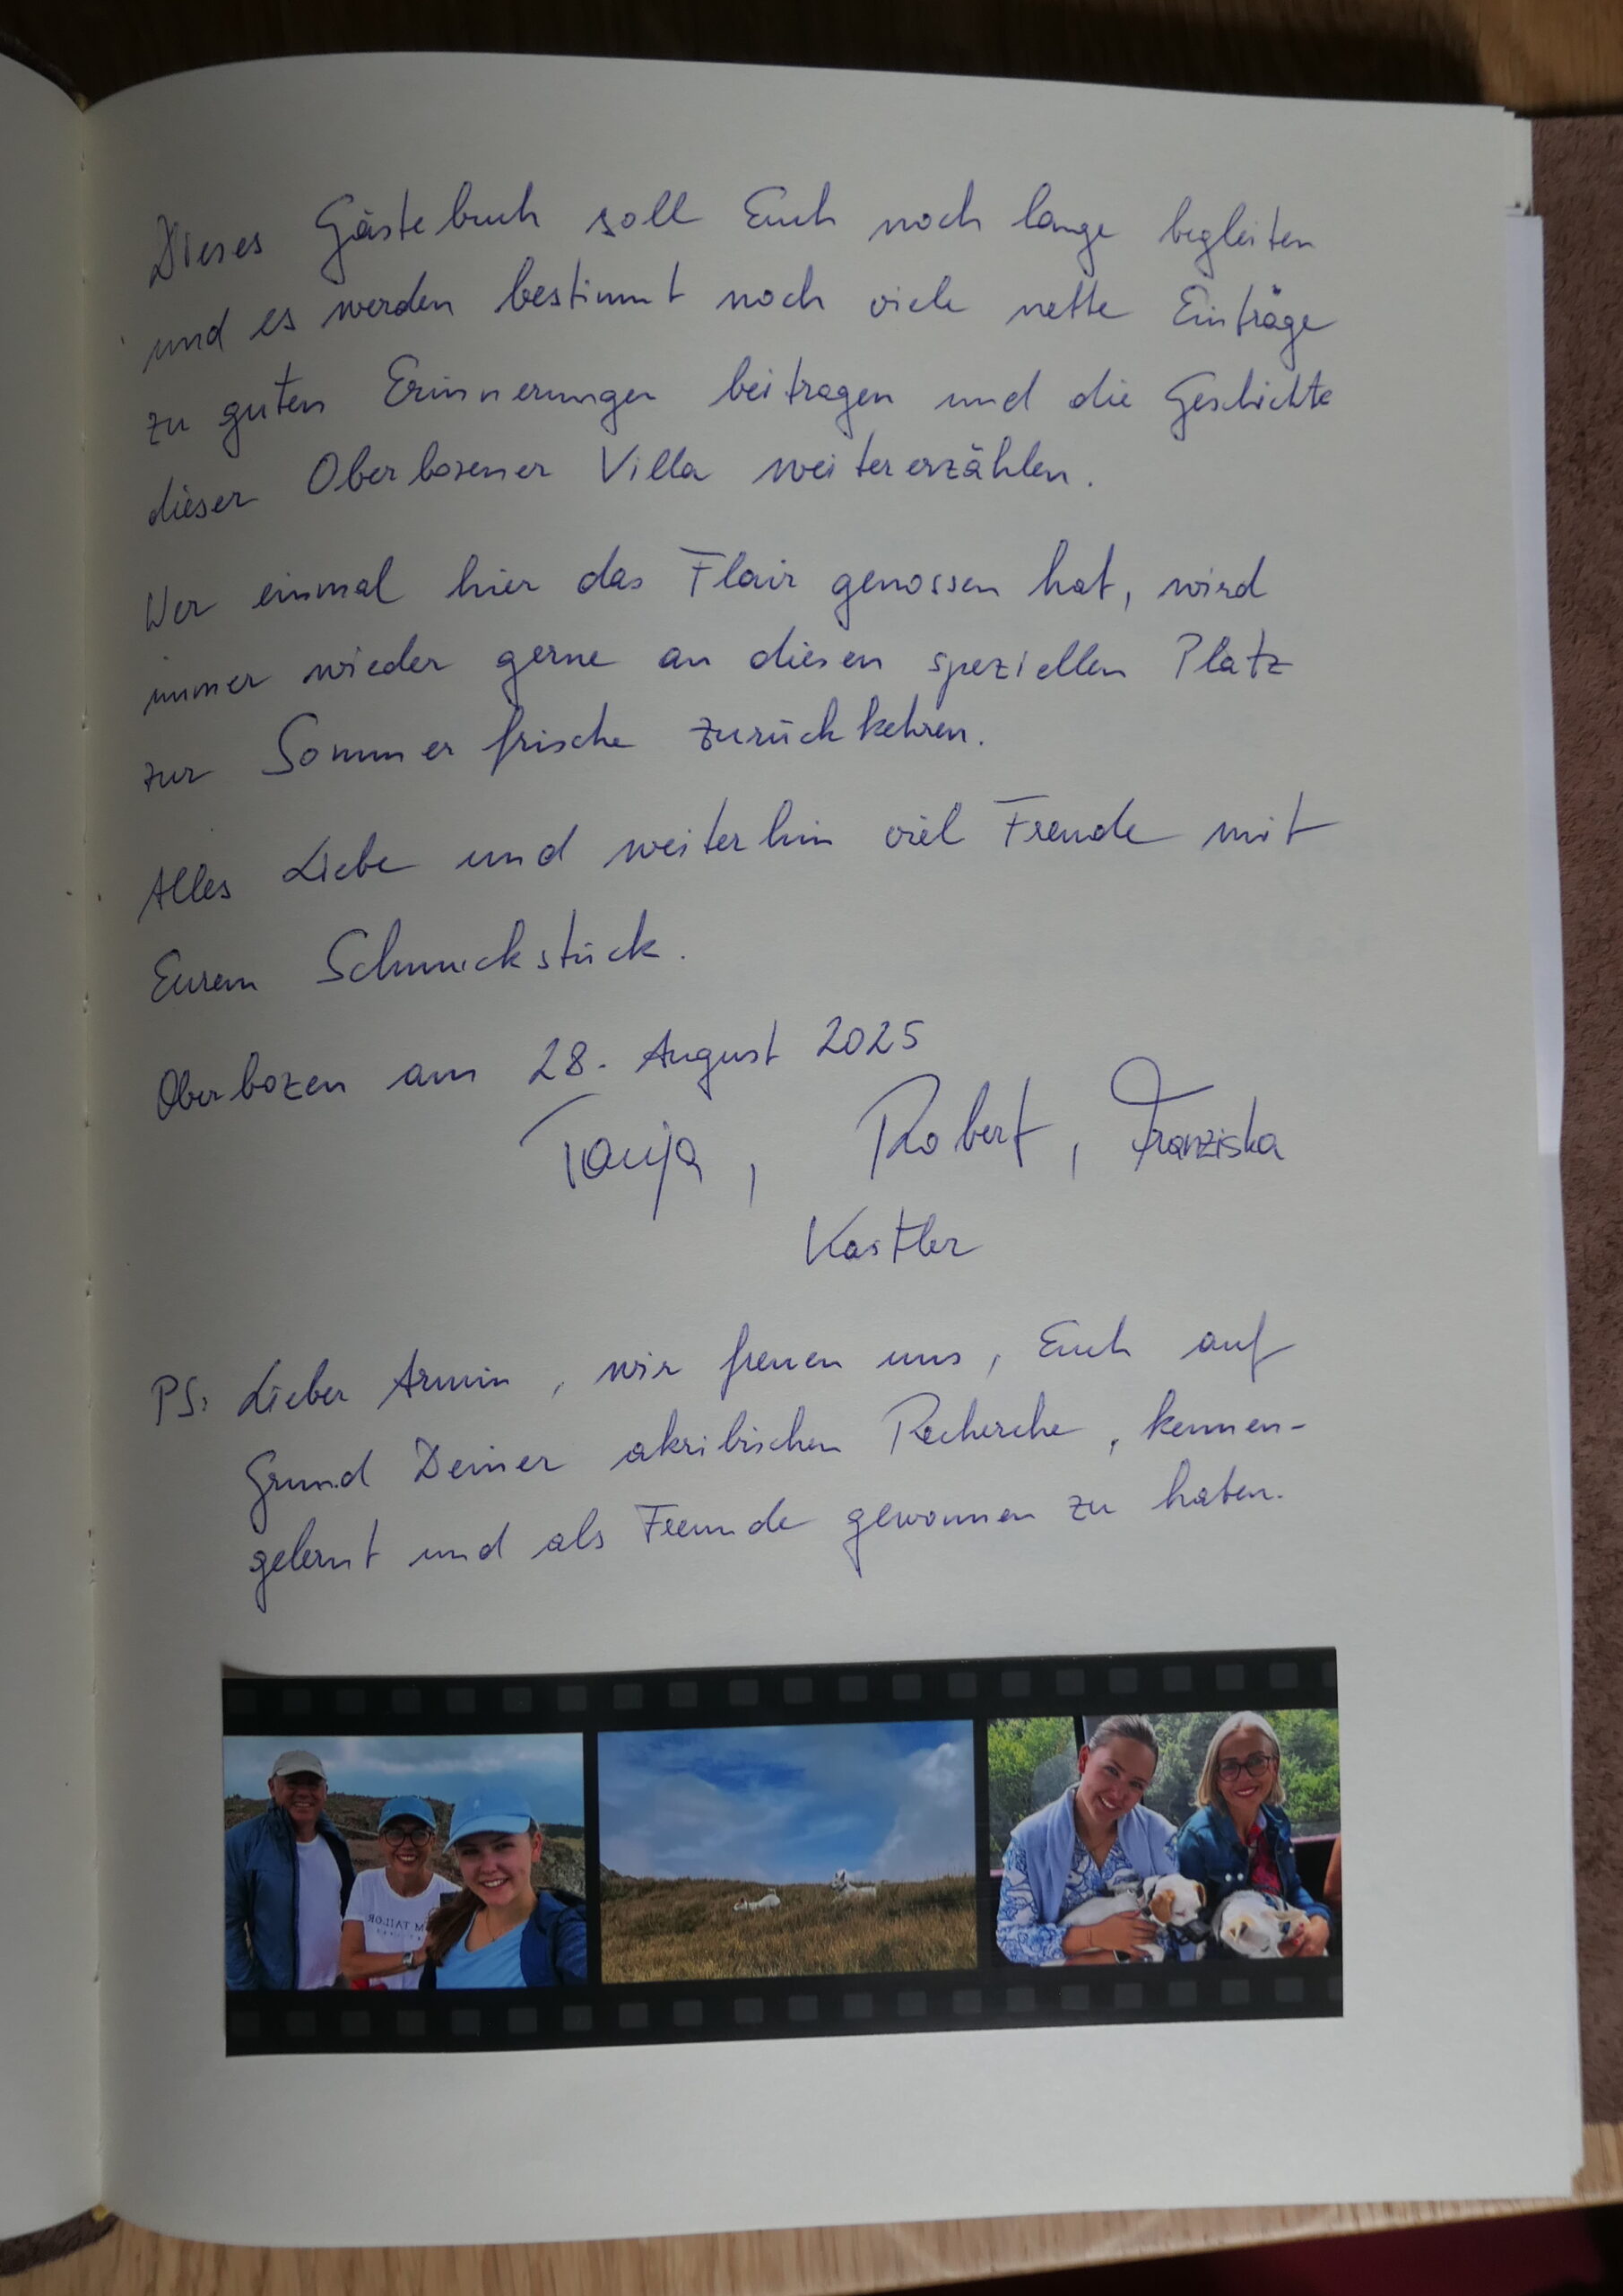 Dieses Gästebuch soll Euch noch lange begleiten
und es werden bestimmt noch viele nette Einträge
zu guten Erinnerungen beitragen und die Geschichte
dieser Oberbozener Villa weitererzählen.
Wer einmal hier das Flair genossen hat, wird
immer wieder gerne an diesen speziellen Platz
zur Sommerfrische zurückkehren.
Alles Liebe und weiterhin viel Freude mit
Eurem Schmuckstück.
Oberbozen am 28. August 2025
Tanja, Robert, Franziska
Kastler
PS: Lieber Armin, wir freuen uns, Euch auf
Grund Deiner akribischen Recherche, kennen-
gelernt und als Freunde gewonnen zu haben.
M TAILOR